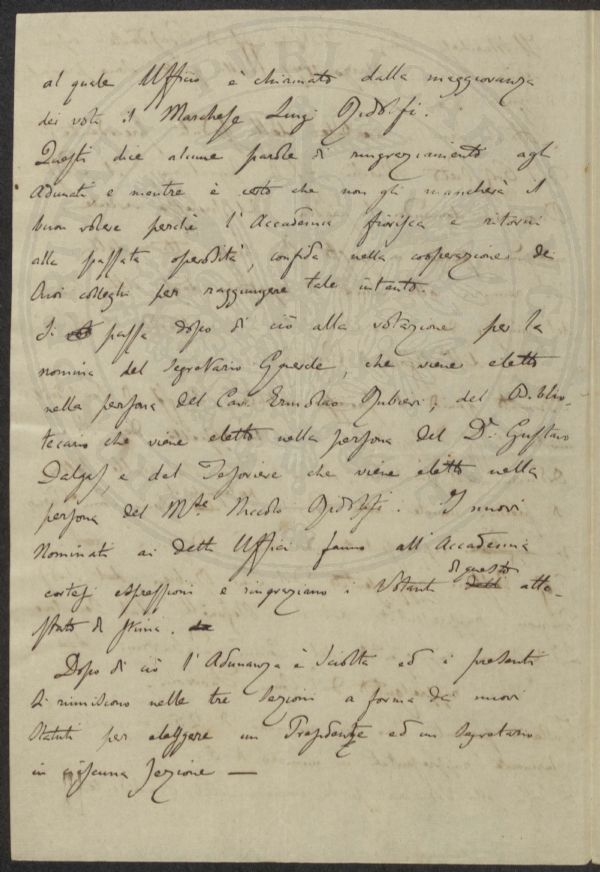 al quale Ufficio è chiamato dalla maggioranza
dei voti il Marchese Luigi Ridolfi.
Questi dice alcune parole di ringraziamento agli
adunati e mentre è certo che non gli mancherà il
buon volere perchè l'Accademia fiorisca e ritorni
alla passata operosità, confida nella cooperazione dei
suoi colleghi per raggiungere tale intento.
Si passa dopo di ciò alla votazione per la
nomina del Segretario G, che viene eletto
nella persona del Cav. Ermolao Rubieri, del Biblio-
tecario che viene eletto nella persona del Dr. Gustavo
Dalgas, e del Tesoriere che viene eletto nella
persona del Mse Niccolò Ridolfi. I nuovi
Nominati ai detti Uffici fanno all'Accademia
cortesi espressioni e ringraziano i Votanti di questo atte-
stato di stima.
Dopo di ciò l'Adunanza è sciolta ed i presenti
si riuniscono nelle tre sezioni a forma dei nuovi
Statuti per eleggere un Presidente ed un Segretario
in ciascuna Sezione —